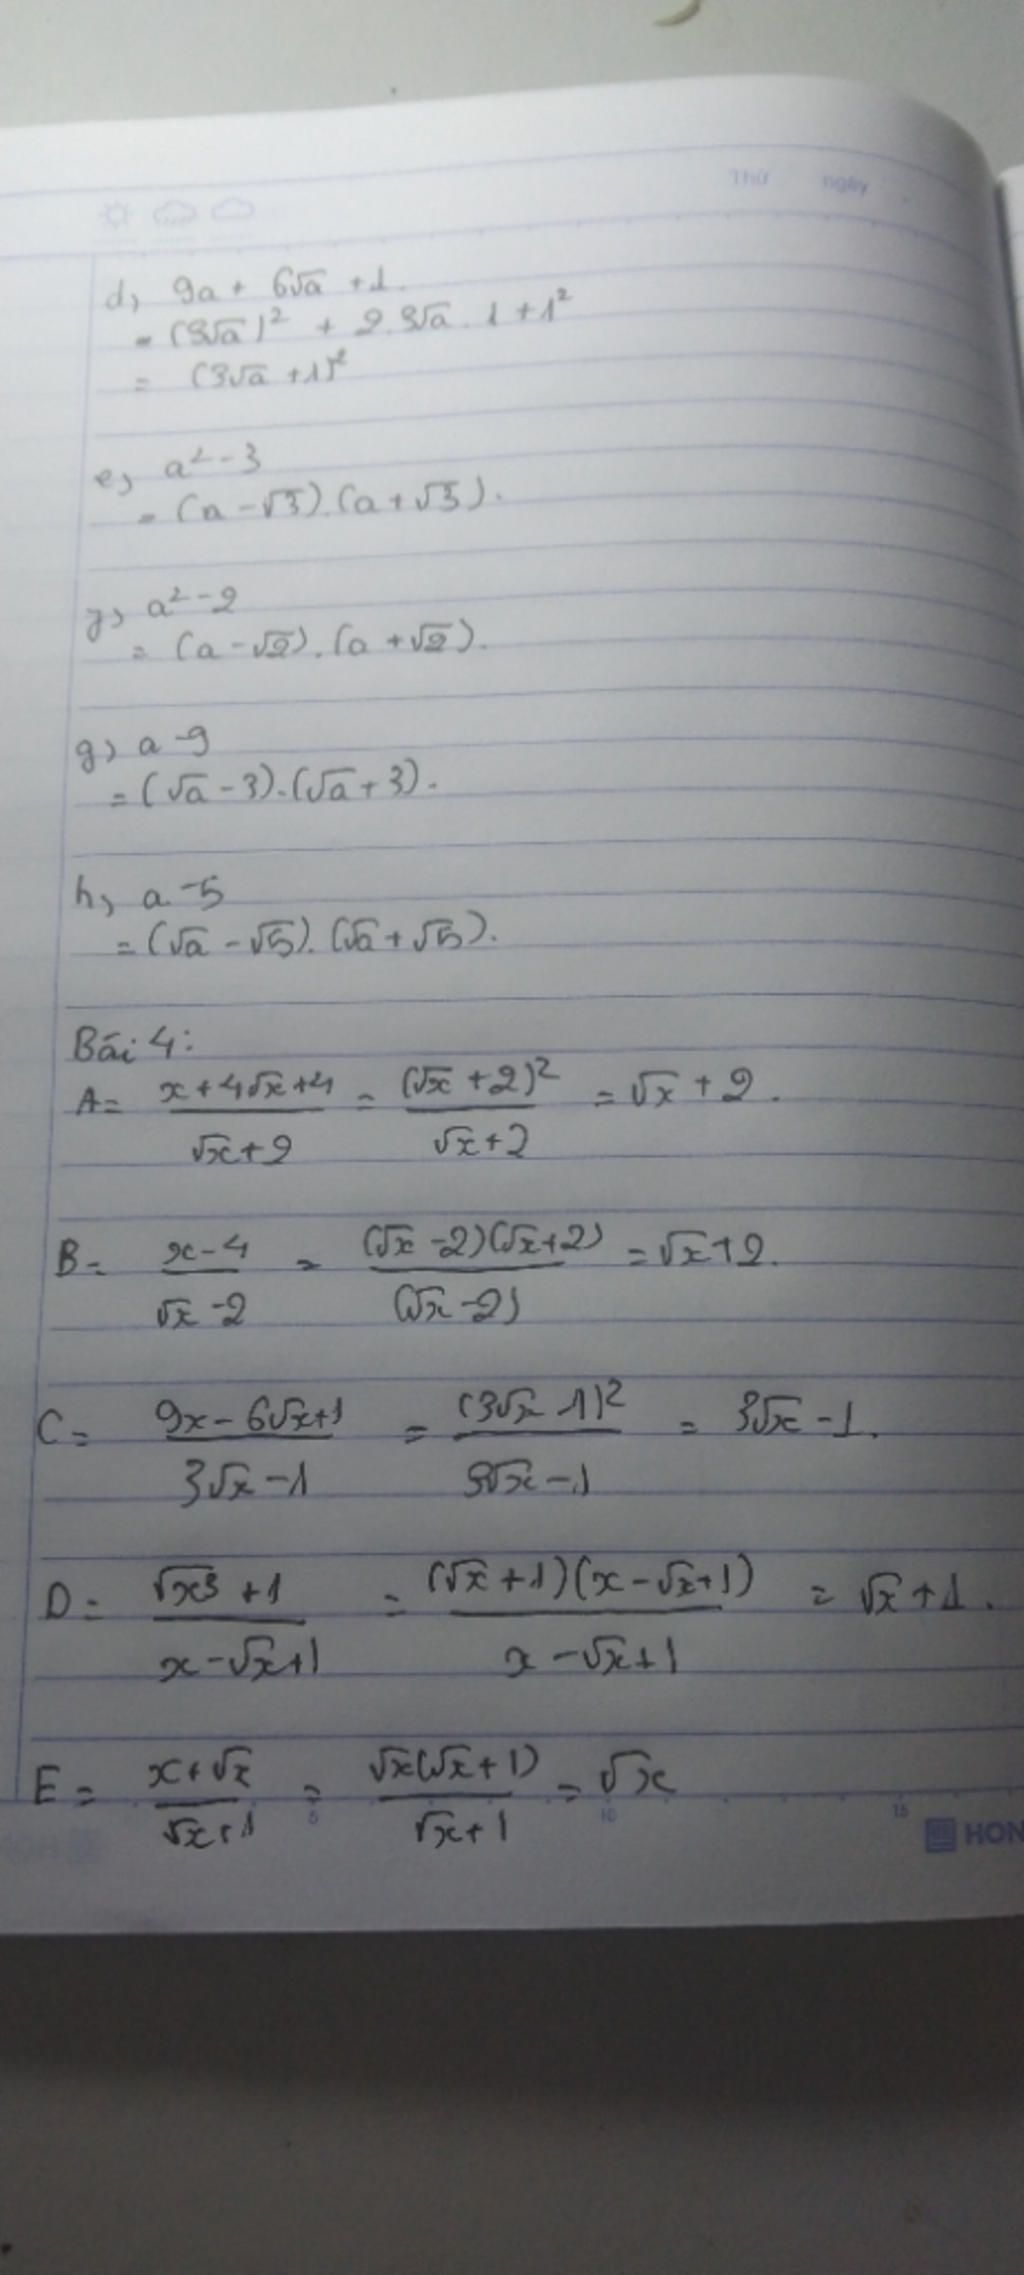 Thứ ngày
d, 9a + 6√a + 1.
= (3√a)² + 2.3√a.1 + 1²
= (3√a + 1)²
e, a² - 3
= (a - √3).(a + √3).
f, a² - 2
= (a - √2).(a + √2).
g, a - 9
= (√a - 3).(√a + 3).
h, a - 5
= (√a - √5).(√a + √5).
Bài 4:
A = (x + 4√x + 4)/(√x + 2) = (√x + 2)²/(√x + 2) = √x + 2.
B = (x - 4)/(√x - 2) = (√x - 2)(√x + 2)/(√x - 2) = √x + 2.
C = (9x - 6√x + 1)/(3√x - 1) = (3√x - 1)²/(3√x - 1) = 3√x - 1.
D = (√x³ + 1)/(x - √x + 1) = (√x + 1)(x - √x + 1)/(x - √x + 1) = √x + 1.
E = (x + √x)/(√x + 1) = √x(√x + 1)/(√x + 1) = √x
5 10 15
HON